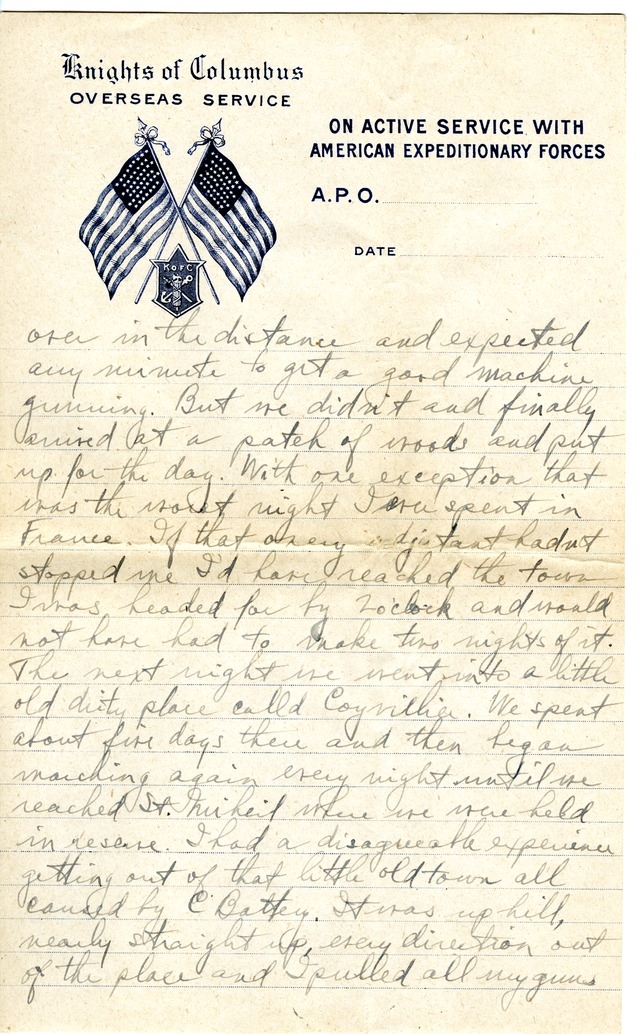 Knights of Columbus
OVERSEAS SERVICE
ON ACTIVE SERVICE WITH
AMERICAN EXPEDITIONARY FORCES
A.P.O.
DATE
K of C
over in the distance and expected
any minute to get a good machine
gunning. But we didn't and finally
arrived at a patch of woods and put
up for the day. With one exception that
was the worst night I ever spent in
France. If that adjutant hadn't
stopped me I'd have reached the town
I was headed for by 2 o'clock and would
not have had to make two nights of it.
The next night we went into a little
old dirty place called Coyvillier. We spent
about five days there and then began
marching again every night until we
reached St. Miheil where we were held
in reserve. I had a disagreeable experience
getting out of that little old town all
caused by C Battery. It was up hill,
nearly straight up, every direction out
of the place and I pulled all my guns